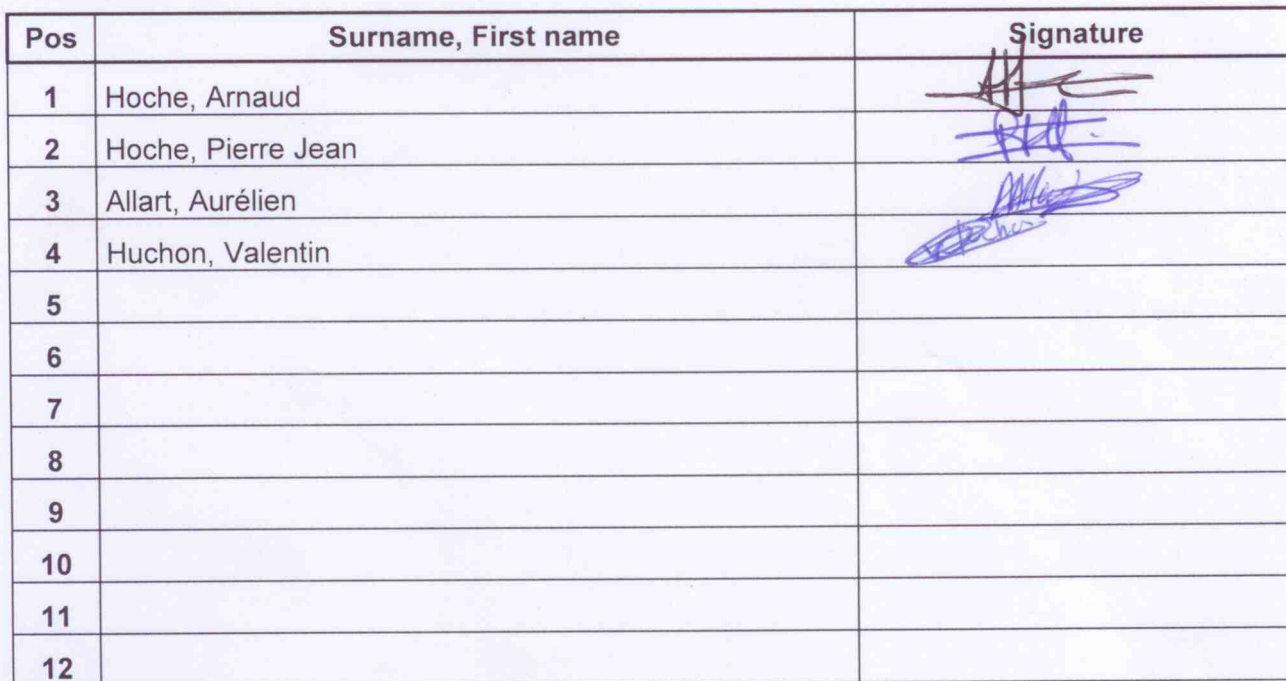 Pos Surname, First name Signature
1 Hoche, Arnaud
2 Hoche, Pierre Jean
3 Allart, Aurélien
4 Huchon, Valentin
5
6
7
8
9
10
11
12